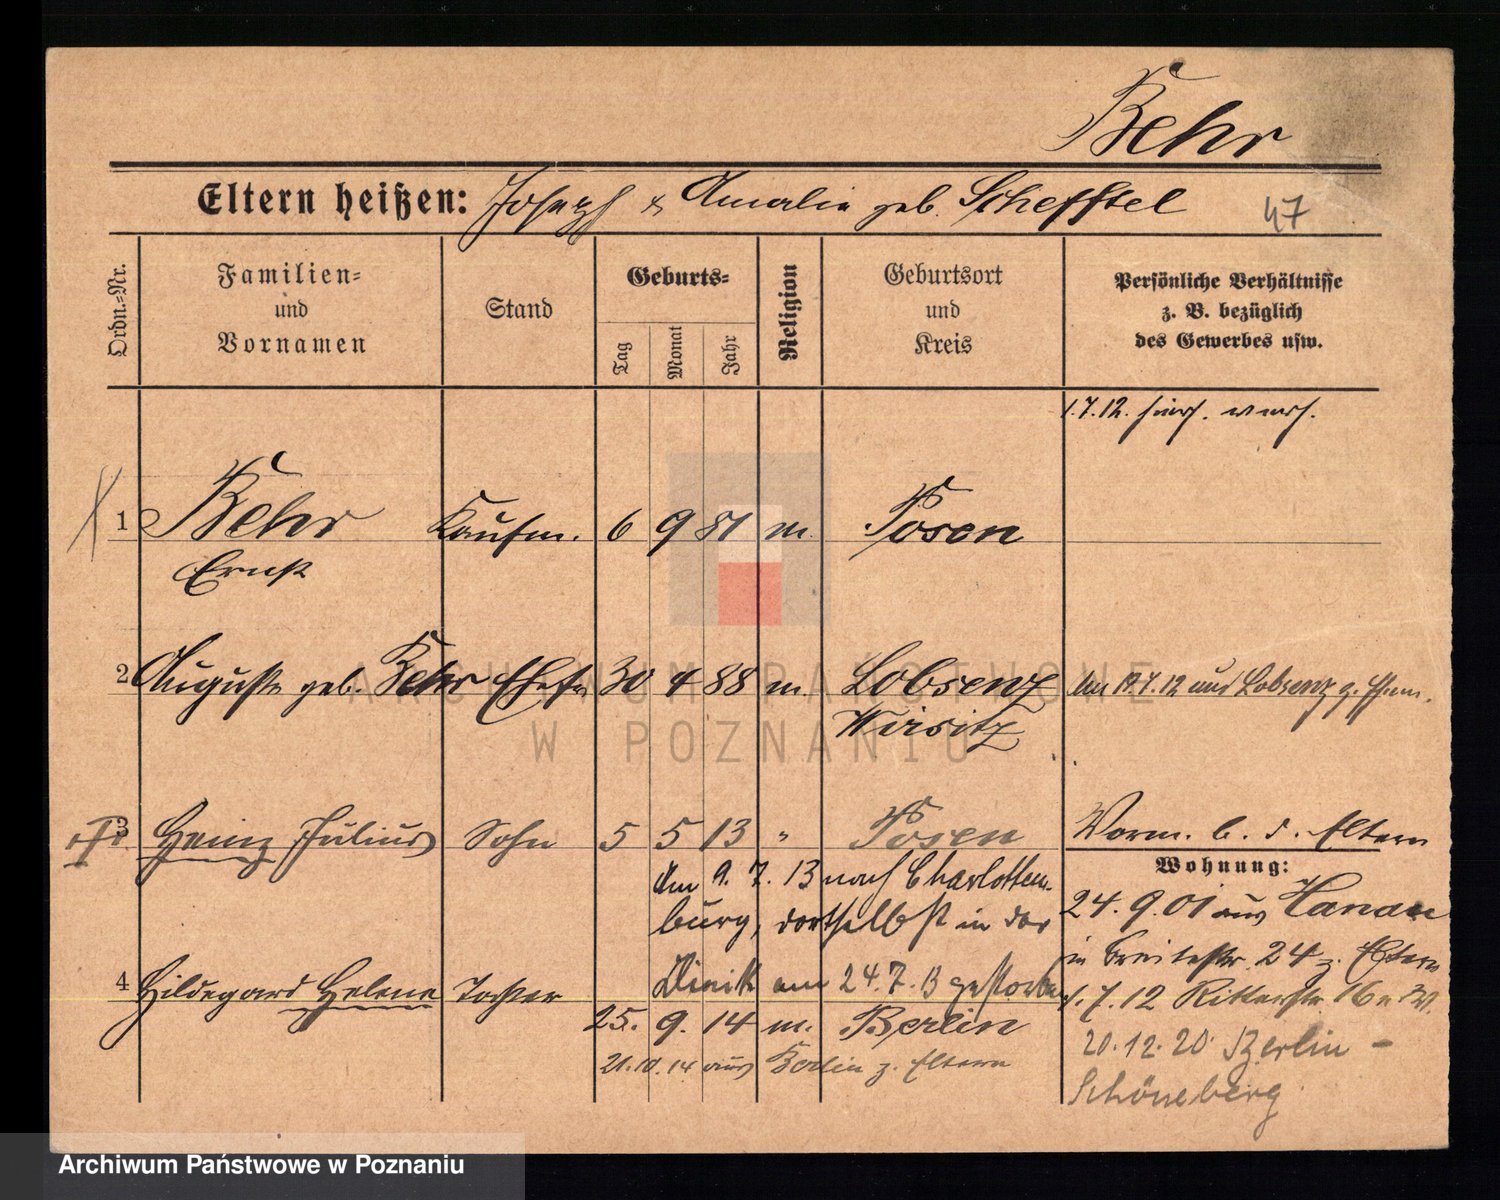 Behr
Eltern heißen: Joseph & Amalie geb. Schefftel 47
Ordn.=Nr.
Familien=
und
Vornamen
Stand
Geburts=
Tag
Monat
Jahr
Religion
Geburtsort
und
Kreis
Persönliche Verhältnisse
z. B. bezüglich
des Gewerbes usw.
1.7.12.
1 Behr Kaufm. 6 9 81 m. Posen
Ernst
2 Auguste geb. Behr Ehefr 30 4 88 m. Lobsenz
Wirsitz
Am 19.7.12 aus Lobsenz z.
3 Heinz Julius Sohn 5 5 13 " Posen
Am 9. 7. 13 nach Charlotten-
burg, dortselbst in der
Klinik am 24.7.13 gestorben
4 Hildegard Helene Tochter
25. 9. 14 m. Berlin
21.10.14 aus Berlin z. Eltern
Worm. b. d. Eltern
Wohnung:
24.9.01 aus Hanau
in Breitestr. 24 z. Eltern
1.7.12 Ritterstr. 16
20.12.20 Berlin -
Schöneberg
ARCHIWUM PAŃSTWOWE
W POZNANIU
Archiwum Państwowe w Poznaniu